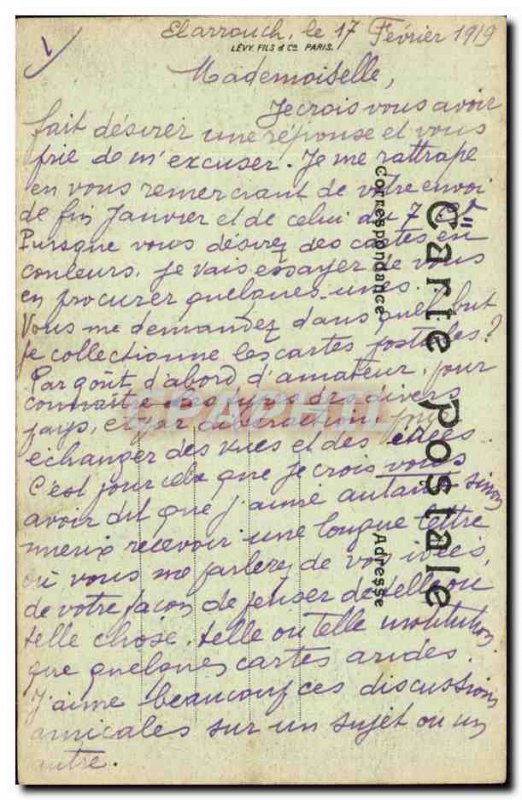 Elarrouch, le 17 Février 1919
LÉVY, FILS & Cie PARIS.
Mademoiselle,
Je crois vous avoir
fait désirer une réponse et vous
prie de m'excuser. Je me rattrape
en vous remerciant de votre envoi
de fin Janvier et de celui du 7
Puisque vous désirez des cartes en
couleurs, je vais essayer de vous
en procurer quelques-unes.
Vous me demandez dans quel but
je collectionne les cartes postales?
Par goût, d'abord d'amateur, pour
connaître les vues des divers
pays, et par distraction, pr
échanger des vues et des idées.
C'est pour cela que je crois vous
avoir dit que j'aime autant sinon
mieux recevoir une longue lettre
où vous me parlerez de vos idées,
de votre façon de penser de telle ou
telle chose, telle ou telle institution
que quelques cartes arides.
J'aime beaucoup ces discussions
amicales sur un sujet ou un
autre.
Carte Postale
Correspondance
Adresse
CPAPHIL